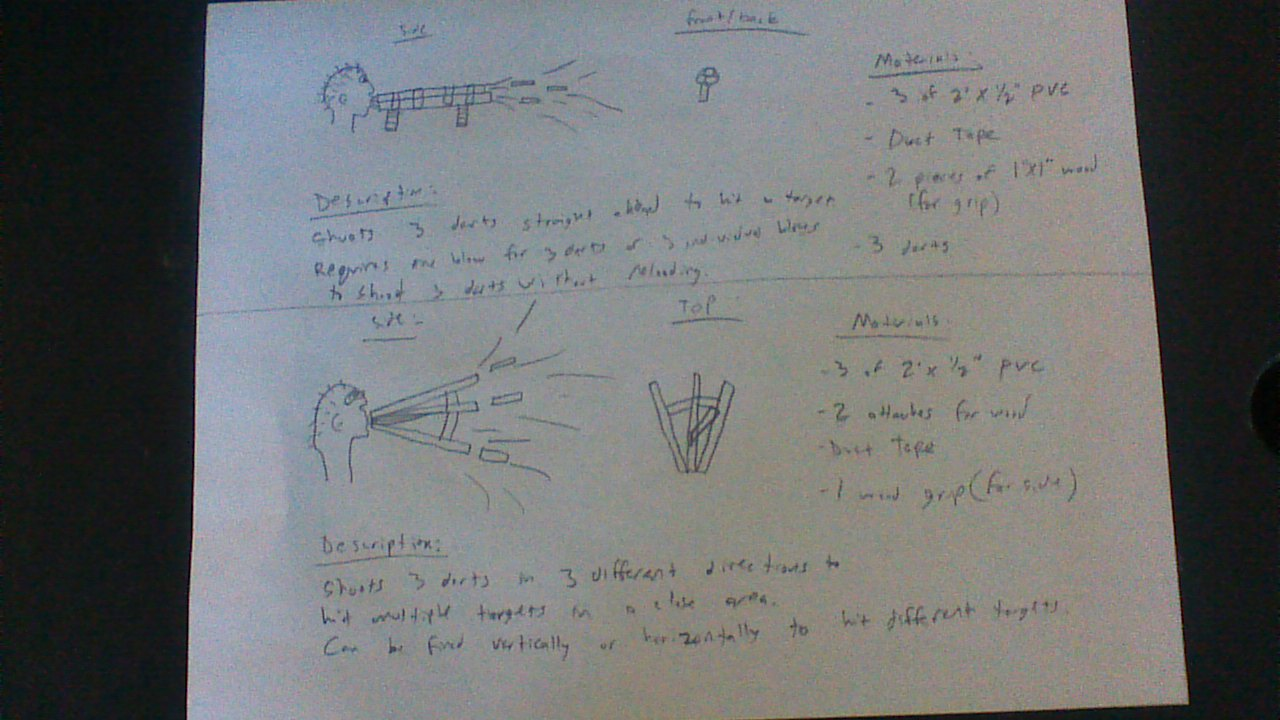 Side
front/back
Materials:
- 3 of 2' x 1/2" PVC
- Duct Tape
- 2 pieces of 1"x1" wood
(for grip)
- 3 darts
Description:
Shoots 3 darts straight ahead to hit a target
Requires one blow for 3 darts or 3 individual blows
to shoot 3 darts without reloading.
Side:
Top
Materials:
- 3 of 2' x 1/2" PVC
- 2 attaches for wood
- Duct Tape
- 1 wood grip (for side)
Description:
Shoots 3 darts in 3 different directions to
hit multiple targets in a close area.
Can be fired vertically or horizontally to hit different targets.